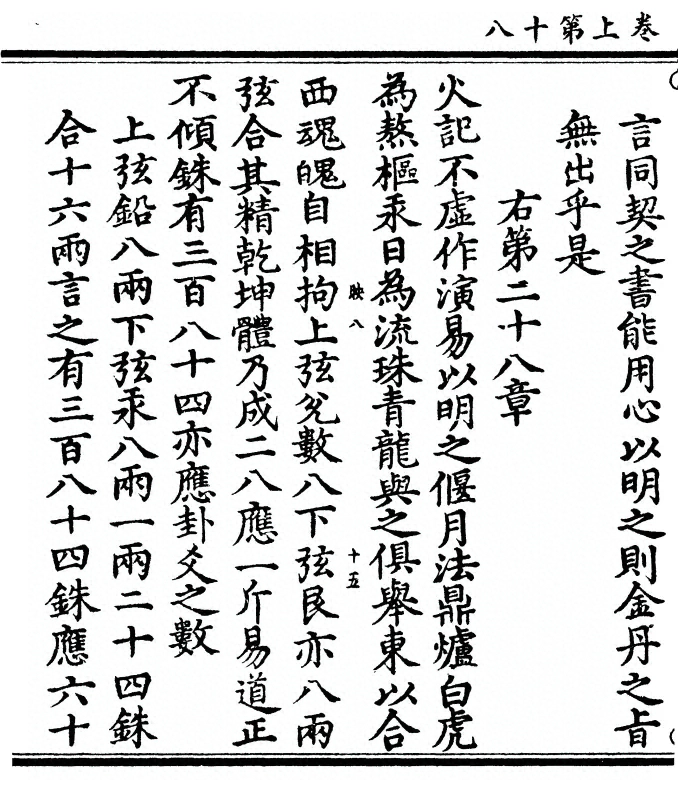 卷上第十八
言同契之書能用心以明之則金丹之旨
無出乎是
右第二十八章
火記不虛作演易以明之偃月法鼎爐白虎
為熬樞汞日為流珠青龍與之俱舉東以合
映八
十五
西魂魄自相拘上弦兌數八下弦艮亦八兩
弦合其精乾坤體乃成二八應一斤易道正
不傾銖有三百八十四亦應卦爻之數
上弦鉛八兩下弦汞八兩一兩二十四銖
合十六兩言之有三百八十四銖應六十